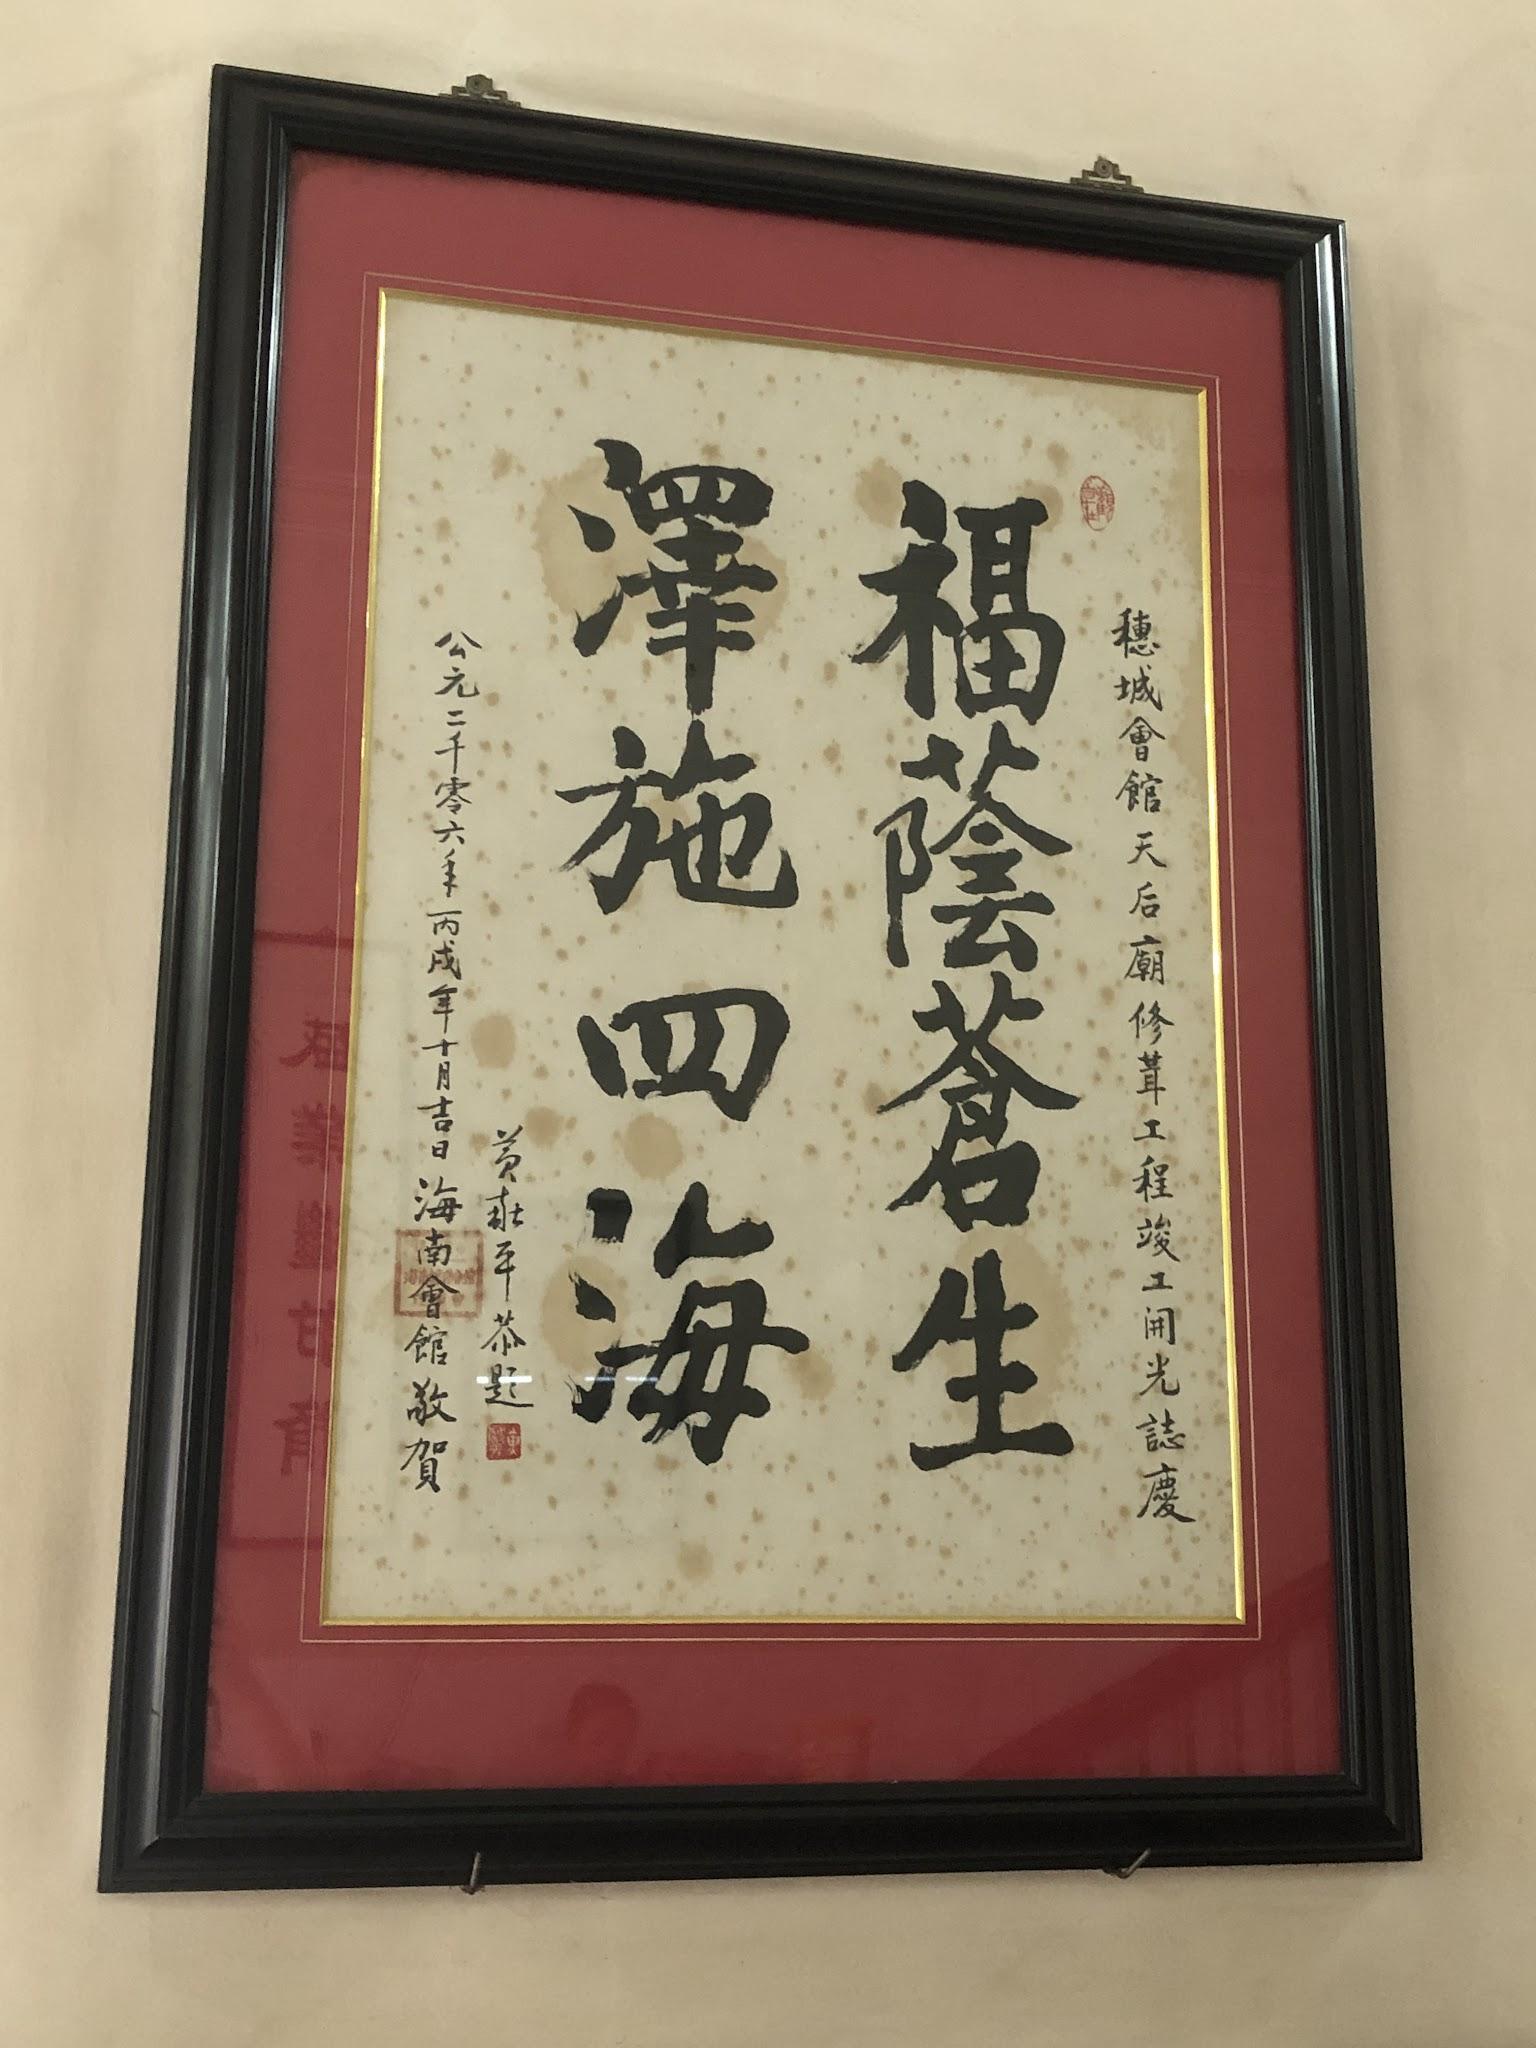 穗城會館天后廟修葺工程竣工開光誌慶
福蔭蒼生
澤施四海
恭題
公元二千零六年丙戌年十月吉日海南會館敬賀